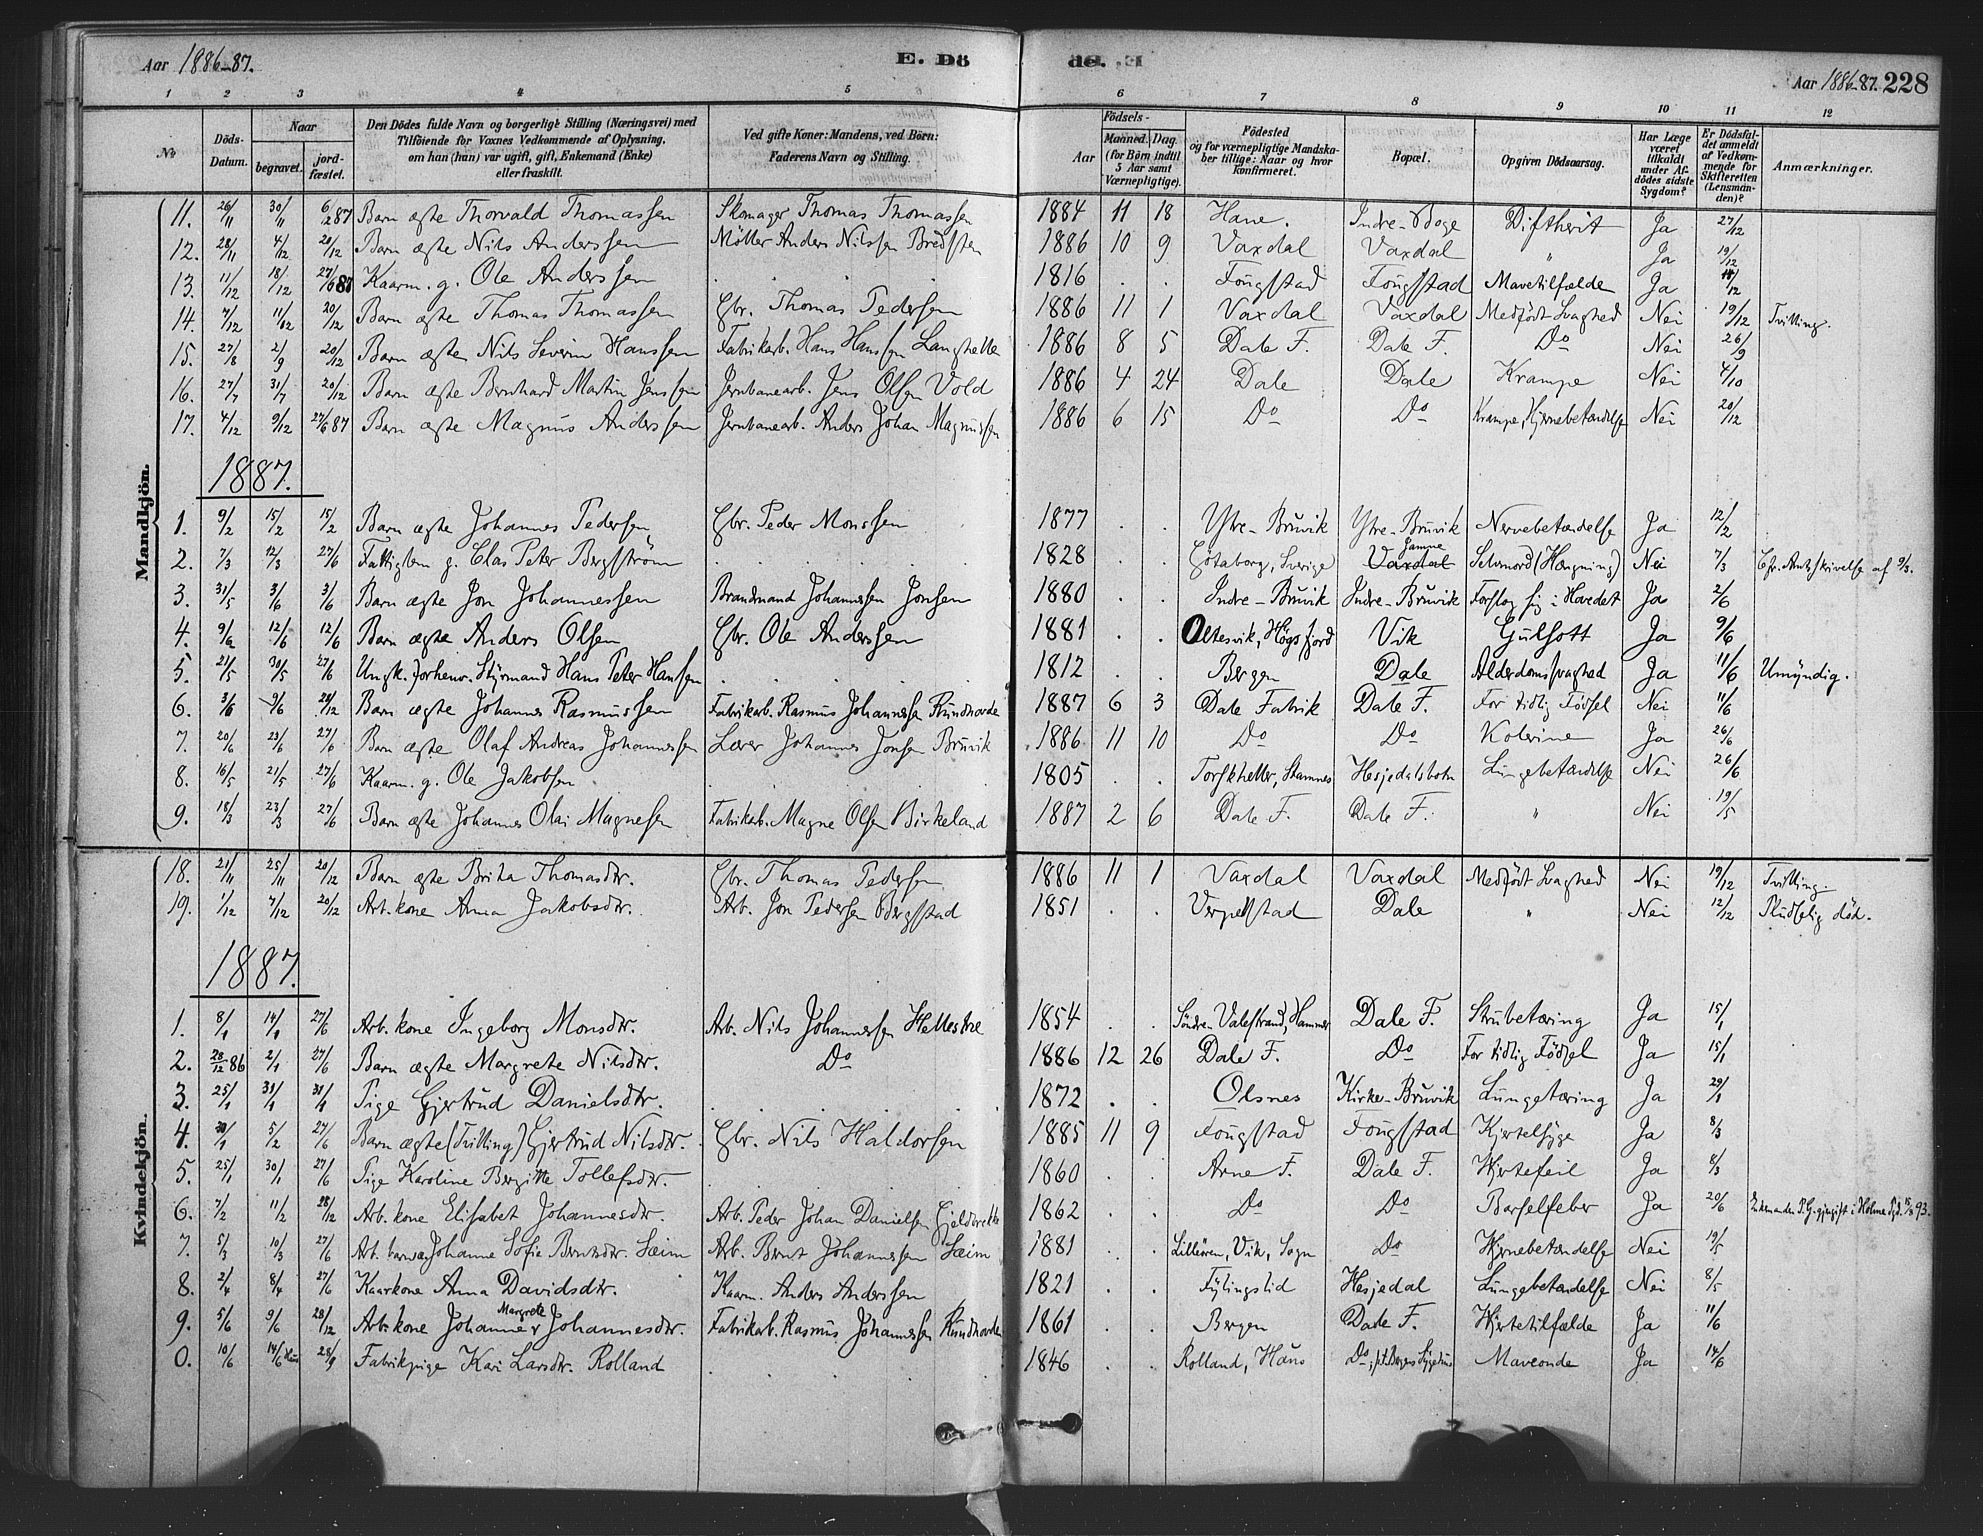 Aar 1886-87. E. Dö de. Aar 1886-87. 228
1 2 3 4 5 6 7 8 9 10 11 12
No
Döds-Datum.
Naar
begravet. jordfæstet.
Den Dödes fulde Navn og borgerlige Stilling (Næringsvei) med
Tilföiende for Voxnes Vedkommende af Oplysning,
om han (hun) var ugift, gift, Enkemand (Enke)
eller fraskilt.
Ved gifte Koner: Mandens, ved Börn:
Faderens Navn og Stilling.
Födsels-
Aar Maaned. Dag.
(for Börn indtil
5 Aar samt
Værnepligtige).
Födested
og for værnepligtige Mandskaber tillige: Naar og hvor
konfirmeret.
Bopæl.
Opgiven Dödsaarsag.
Har Læge
været
tilkaldt
under Afdödes sidste
Sygdom?
Er Dödsfaldet anmeldt
af Vedkommende for
Skifteretten
(Lensmanden)?
Anmærkninger.
Mandkjön.
11. 26/11 30/11 6/2 87 Barn ægte Thorvald Thomassen Skomager Thomas Thomassen 1884 11 18 Hane. Indre-Boge Diftherit Ja 27/12
12. 28/11 4/12 20/12 Barn ægte Nils Anderssen Møller Anders Nilssen Bredsten 1886 10 9 Vaxdal Vaxdal " Ja 19/12
13. 11/12 18/12 27/6 87 Kaarm. g. Ole Anderssen . 1816 . . Fougstad Fougstad Mavetilfælde Ja 11/12
14. 7/12 11/12 20/12 Barn ægte Thomas Thomassen Gbr. Thomas Pedersen 1886 11 1 Vaxdal Vaxdal Medfödt Svaghed Nei 19/12 Tvilling.
15. 27/8 2/9 20/12 Barn ægte Nils Severin Hanssen Fabrikarb. Hans Hanssen Langhelle 1886 8 5 Dale F. Dale F. Do Nei 26/9
16. 27/7 31/7 20/12 Barn ægte Bernhard Martin Jenssen Jernbanearb. Jens Olsen Vold 1886 4 24 Dale Dale Krampe Nei 4/10
17. 4/12 9/12 27/6 87 Barn ægte Magnus Anderssen Jernbanearb. Anders Johan Magnussen 1886 6 15 Do Do Krampe, Hjernebetændelse Nei 20/12
1887.
1. 9/2 15/2 15/2 Barn ægte Johannes Pedersen Gbr. Peder Monssen 1877 . . Ytre-Bruvik Ytre-Bruvik Nervebetændelse Ja 12/2
2. 7/3 12/3 27/6 Fattiglem g. Clas Peter Bergström . 1828 . . Götaborg, Sverige Vaxdal Selvmord (Hængning) Nei 7/3 Cfr. Amtsskrivelse af 9/3.
3. 31/5 3/6 3/6 Barn ægte Jon Johannessen Brandmand Johannessen Jonsen 1880 . . Indre-Bruvik Indre-Bruvik Forslog sig i Hovedet Ja 2/6
4. 9/6 12/6 12/6 Barn ægte Anders Olsen Gbr. Ole Anderssen 1881 . . Oltesvik, Högsfjord Vik Gulsott Ja 9/6
5. 21/5 30/5 27/6 Ungk. forhenv. Styrmand Hans Peter Hanssen . 1812 . . Bergen Dale Alderdomssvaghed Ja 11/6 Umyndig.
6. 3/6 9/6 28/12 Barn ægte Johannes Rasmussen Fabrikarb. Rasmus Johannessen Rundhovde 1887 6 3 Dale Fabrik Dale F. For tidlig Födsel Nei 11/6
7. 20/6 23/6 27/6 Barn ægte Olaf Andreas Johannessen Lærer Johannes Jonsen Bruvik 1886 11 10 Do Do Kolerine Ja 26/6
8. 16/5 21/5 27/6 Kaarm. g. Ole Jakobsen . 1805 . . Torskheller, Stamnes Hesjedalsbotn Lungebetændelse Nei 26/6
9. 18/3 23/3 27/6 Barn ægte Johannes Olai Magnesen Fabrikarb. Magne Olsen Birkeland 1887 2 6 Dale F. Dale F. " Nei 19/5
Kvindekjön.
18. 21/11 25/11 20/12 Barn ægte Brita Thomasdtr. Gbr. Thomas Pedersen 1886 11 1 Vaxdal Vaxdal Medfödt Svaghed Nei 19/12 Tvilling.
19. 1/12 7/12 20/12 Arb. kone Anna Jakobsdtr. Arb. Jon Pedersen Bergstad 1851 . . Dale " Nei 12/12 Pludselig död.
1887.
1. 8/1 14/1 27/6 Arb. kone Ingeborg Monsdtr. Arb. Nils Johannessen Hellestræ 1854 . . Söndre-Valestrand, Hammer Dale F. Strubetæring Ja 15/1
2. 28/12 86 2/1 27/6 Barn ægte Margrete Nilsdtr. Do 1886 12 26 Dale F. Do For tidlig Födsel Ja 15/1
3. 25/1 31/1 31/1 Pige Gjertrud Danielsdtr. . 1872 . . Olsnes Kirke-Bruvik Lungetæring Ja 29/1
4. 30/1 5/2 27/6 Barn ægte (Tvilling) Gjertrud Nilsdtr. Gbr. Nils Haldorsen 1885 11 9 Fougstad Fougstad Kjertelsyge Ja 8/3
5. 25/1 30/1 27/6 Pige Karoline Bergitte Tollefsdtr. . 1860 . . Arne F. Dale F. Hjertefeil Ja 8/3
6. 7/2 11/2 28/12 Arb. kone Elisabet Johannesdtr. Arb. Peder Johan Danielsen 1862 . . Do Do Barselfeber Ja 20/6 Enkemanden P. G. gjengift i 93.
7. 5/3 10/3 27/6 Arb. barn Johanne Sofie Berntsdtr. Sæim Arb. Bernt Johannessen Sæim 1881 . . Lilleören, Vik, Sogn Do Hjernebetændelse Nei 19/5
8. 2/4 8/4 27/6 Kaarkone Anna Davidsdtr. Kaarm. Anders Anderssen 1821 . . Fylingslid Hesjedal Lungebetændelse Nei 8/5
9. 5/6 9/6 28/12 Arb. kone Johanne Margrete Johannesdtr. Fabrikarb. Rasmus Johannessen Rundhovde 1861 . . Bergen Dale F. Hjertetilfælde Ja 11/6
0. 10/6 14/6 Haus 28/9 Fabrikpige Kari Larsdtr. Rolland . 1846 . . Rolland, Haus Do, pt. Bergens Sygehus Maveonde Ja 14/6